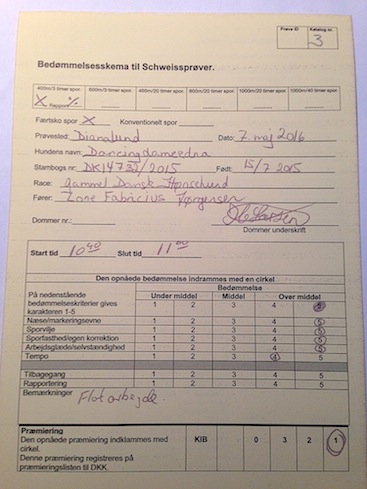 Prøve ID Katalog nr.
3
Bedømmelsesskema til Schweissprøver.
400m/3 timer spor. 600m/3 timer spor. 400m/20 timer spor. 600m/20 timer spor. 1000m/20 timer spor. 1000m/40 timer spor.
X Rapport %
Færtsko spor X Konventionelt spor
Prøvested: Dianalund Dato: 7. maj 2016
Hundens navn: Dancingdameedna
Stambogs nr: DK14732/2015 Født: 15/7 2015
Race: Gammel Dansk Hønsehund
Fører: Lone Fabricius Jørgensen
Dommer nr.:
Dommer underskrift
Start tid 10 40 Slut tid 11 00
Den opnåede bedømmelse indrammes med en cirkel
Bedømmelse
På nedenstående bedømmelseskriterier gives karakteren 1-5
Under middel Middel Over middel
1 2 3 4 5
Næse/markeringsevne 1 2 3 4 5
Sporvilje 1 2 3 4 5
Sporfasthed/egen korrektion 1 2 3 4 5
Arbejdsglæde/selvstændighed 1 2 3 4 5
Tempo 1 2 3 4 5
Tilbagegang 1 2 3 4 5
Rapportering 1 2 3 4 5
Bemærkninger Flot arbejde.
Præmiering
Den opnåede præmiering indklammes med cirkel.
Denne præmiering registreres på præmieringslisten til DKK.
KIB 0 3 2 1